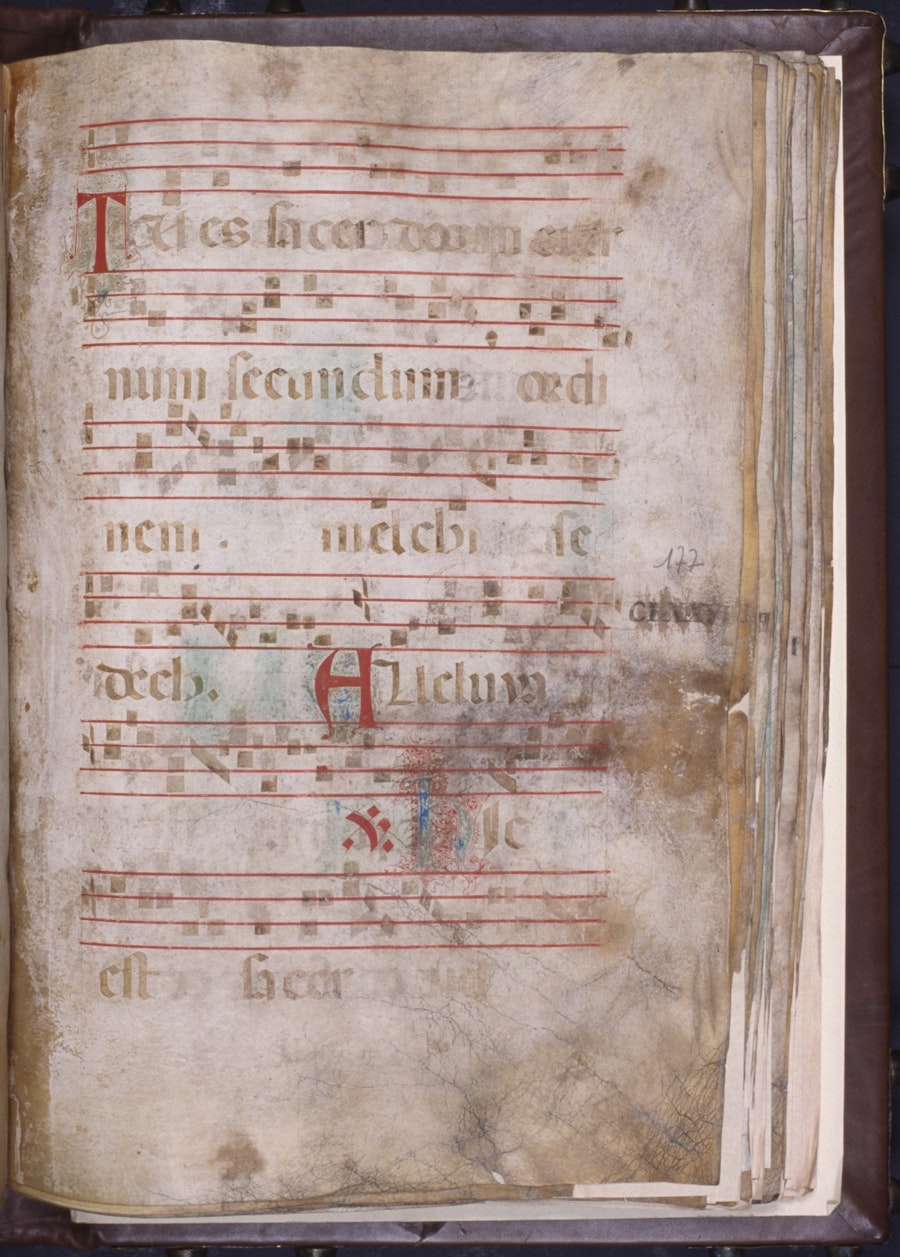 Tu es sacerdos in eter
num secundum ordi
nem . melchi se
dech . Alleluya
℣. Hic
177
est sacerdos